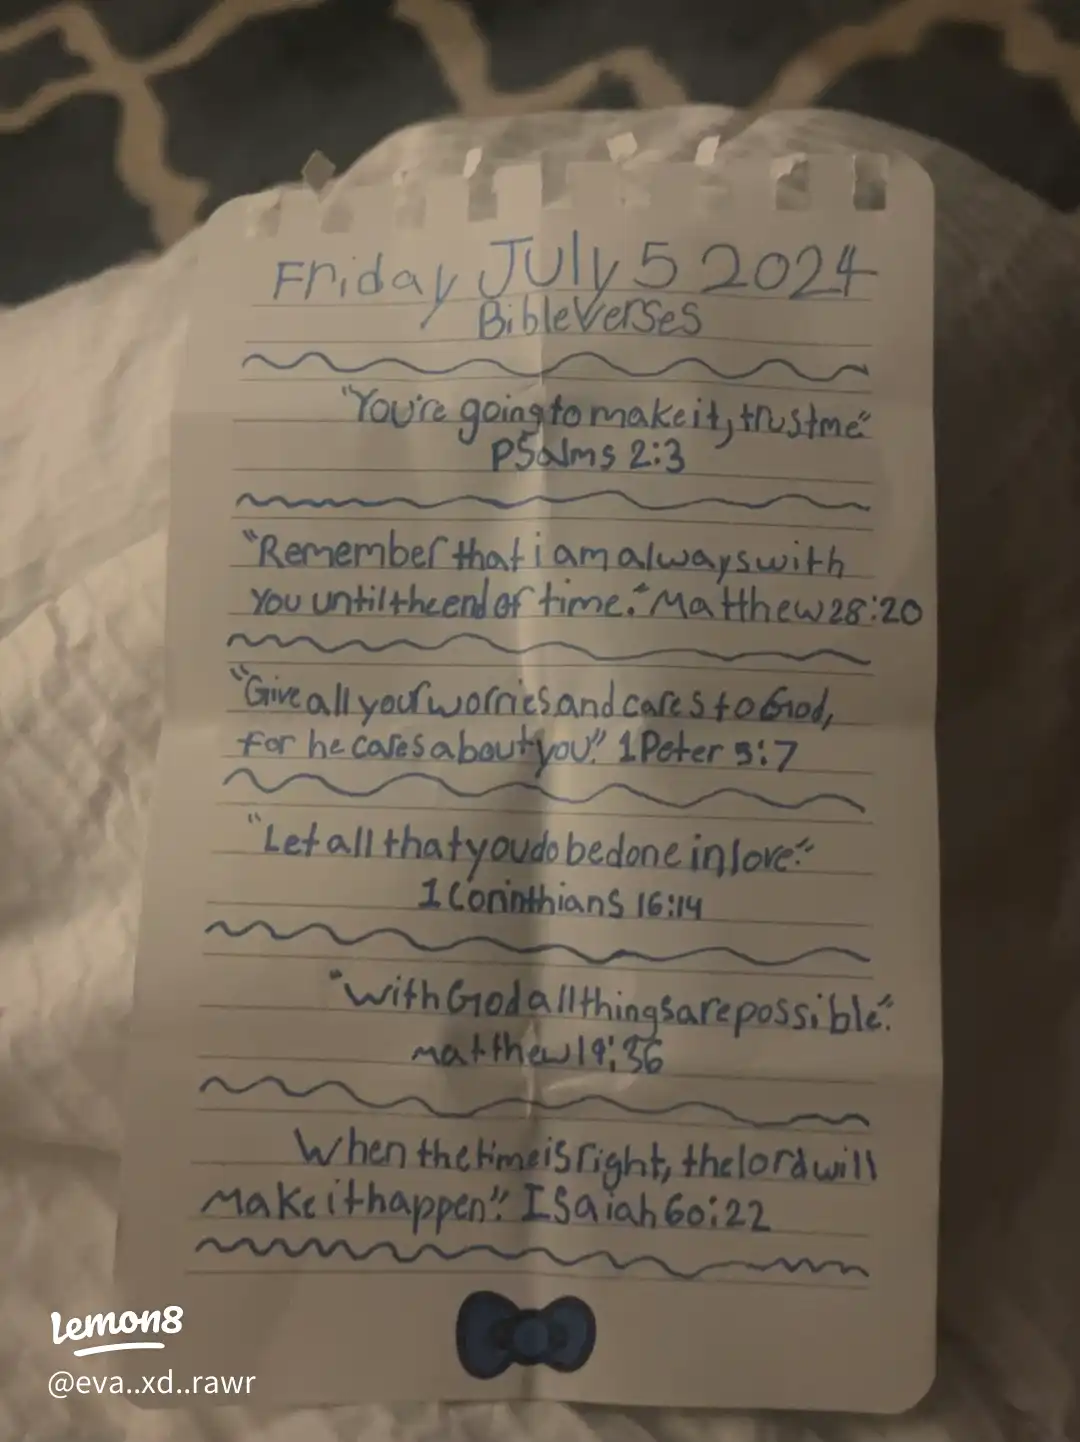 Friday July 5 2024
Bible Verses
"You're going to make it, trust me."
Psalms 2:3
"Remember that i am always with
you until the end of time." Matthew 28:20
"Give all your worries and cares to God,
for he cares about you." 1 Peter 5:7
"Let all that you do be done in love."
1 Corinthians 16:14
"with God all things are possible".
matthew 19:36
When the time is right, the lord will
make it happen". Isaiah 60:22
Lemon8
@eva..xd..rawr